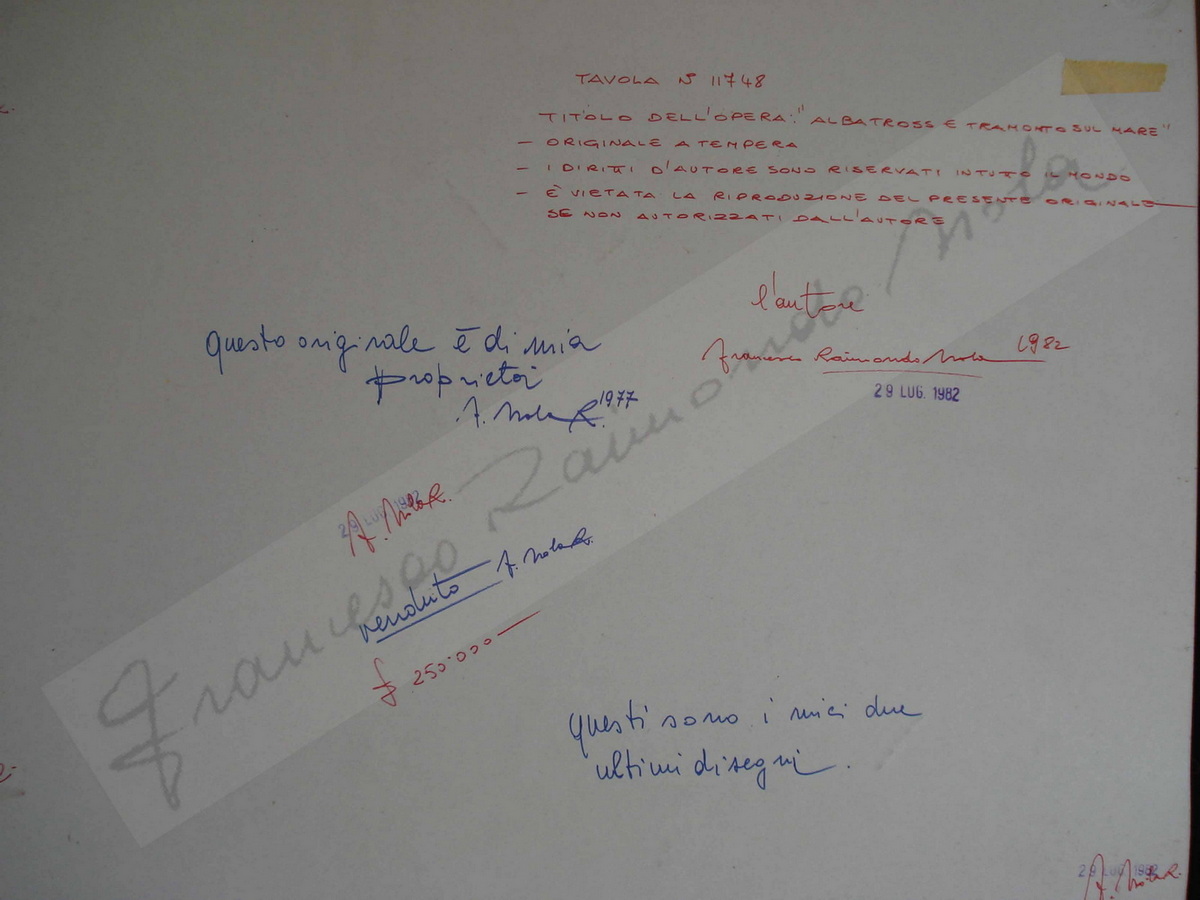 TAVOLA N° 11748
TITOLO DELL'OPERA: "ALBATROSS E TRAMONTO SUL MARE"
- ORIGINALE A TEMPERA
- I DIRITTI D'AUTORE SONO RISERVATI IN TUTTO IL MONDO
- È VIETATA LA RIPRODUZIONE DEL PRESENTE ORIGINALE
SE NON AUTORIZZATI DALL'AUTORE
l'autore
Francesco Raimondo Nola 1982
29 LUG. 1982
Questo originale è di mia
proprietà
F. Nola R. 1977
29 LUG 1982
F. Nola R.
venduto F. Nola R.
£ 250.000
Questi sono i miei due
ultimi disegni.
29 LUG 1982
F. Nola R.
Francesco Raimondo Nola